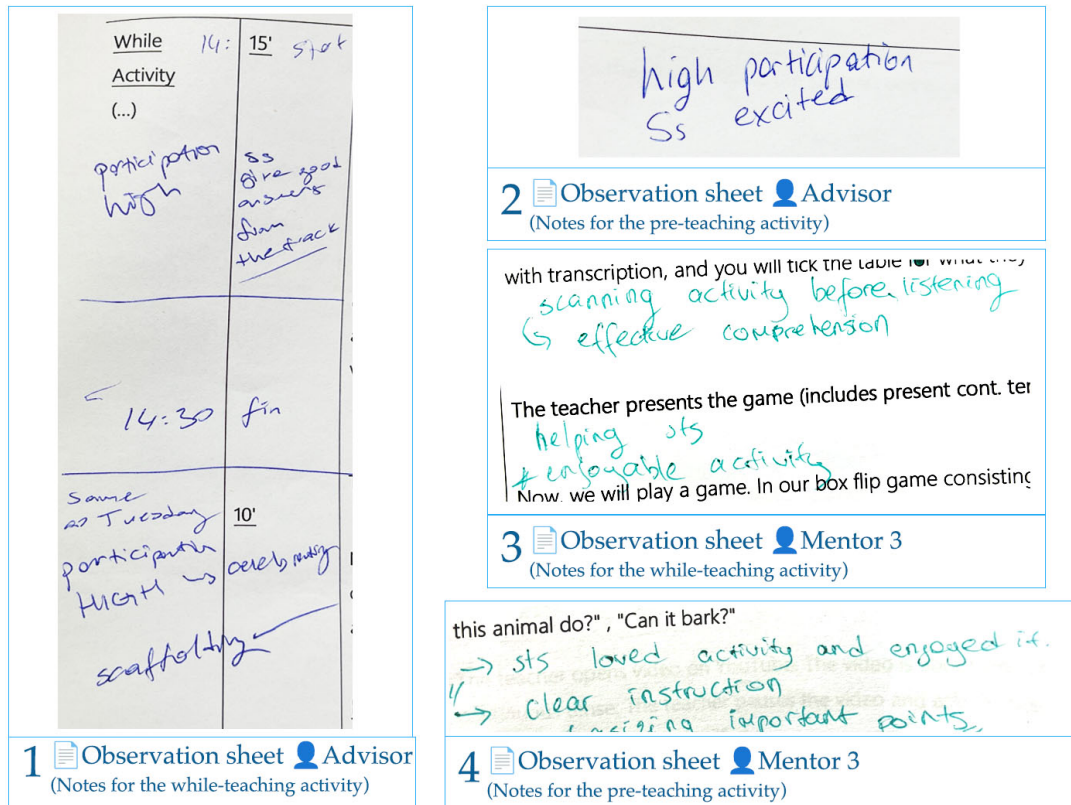 While 14: 15' start
Activity
(...)
participation
high
Ss
give good
answers
from
the track
14:30 fin
Same
as Tuesday
10'
participation
HIGH
scaffolding
1 Observation sheet Advisor
(Notes for the while-teaching activity)
high participation
Ss excited
2 Observation sheet Advisor
(Notes for the pre-teaching activity)
with transcription, and you will tick the table for what they
scanning activity before listening
effective comprehension
The teacher presents the game (includes present cont. ter
helping sts
* enjoyable activity
Now, we will play a game. In our box flip game consisting
3 Observation sheet Mentor 3
(Notes for the while-teaching activity)
this animal do?", "Can it bark?"
→ sts loved activity and enjoyed it.
→ clear instruction
important points
4 Observation sheet Mentor 3
(Notes for the pre-teaching activity)